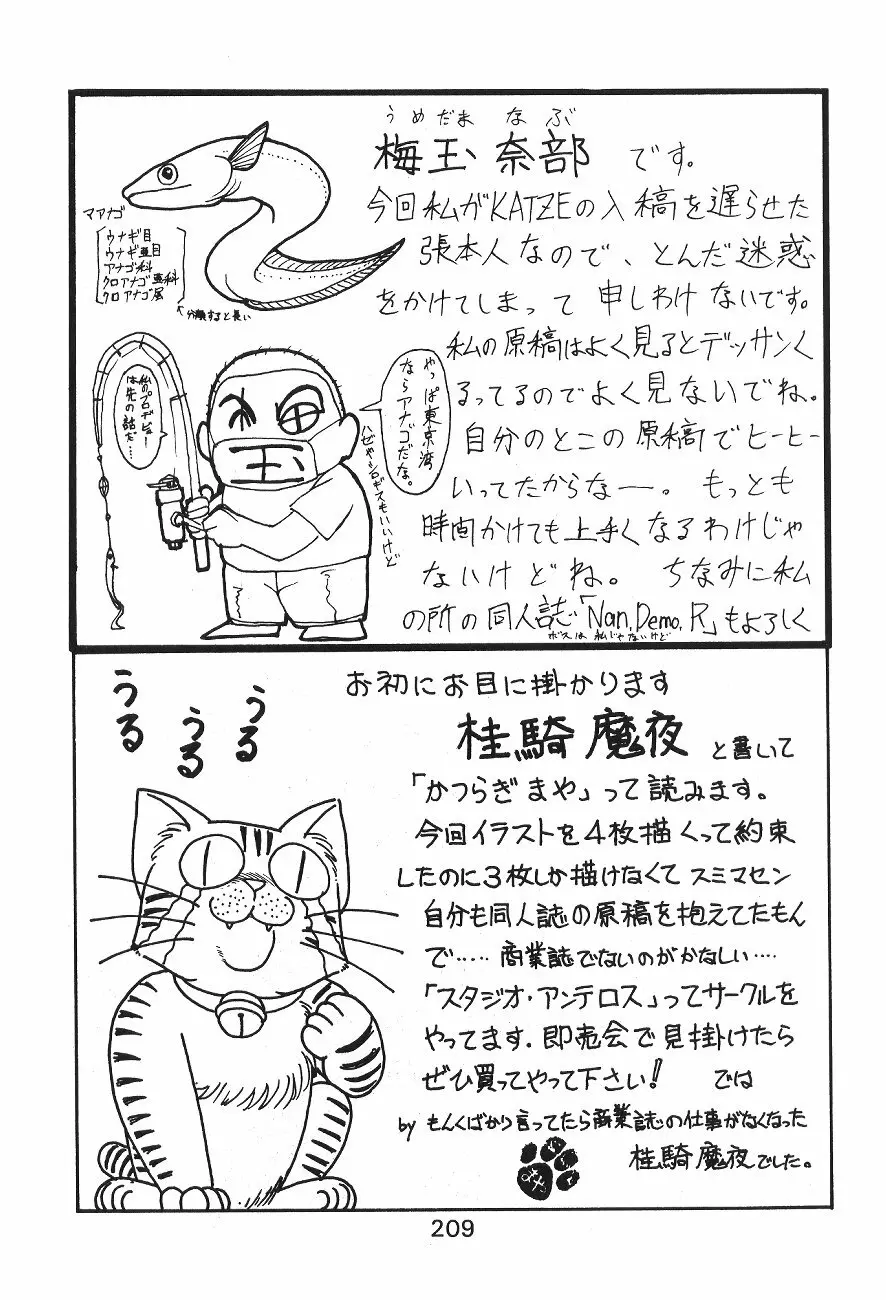 うめだま なぶ
梅玉 奈部 です。
今回私がKATZEの入稿を遅らせた
張本人なので、とんだ迷惑
をかけてしまって 申しわけ ないです。
私の原稿はよく見るとデッサンく
るってるのでよく見ないでね。
自分のとこの原稿でヒーヒー
いってたからなー。 もっとも
時間かけても上手くなるわけじゃ
ないけどね。 ちなみに私
の所の同人誌「Nan,Demo,R」もよろしく
ボスは私じゃないけど
マアナゴ
ウナギ目
ウナギ亜目
アナゴ科
クロアナゴ亜科
クロアナゴ属
↖分類すると長い
やっぱ東京湾
ならアナゴだな。
ハゼやシロギスもいいけど
私のプロデビュー
は先の話だ…
玉
うる
うる
うる
お初にお目に掛かります
桂騎魔夜 と書いて
「かつらぎまや」って読みます。
今回イラストを4枚描くって約束
したのに3枚しか描けなくてスミマセン
自分も同人誌の原稿を抱えてたもん
で…… 商業誌でないのがかなしい……
「スタジオ・アンテロス」ってサークルを
やってます。即売会で見掛けたら
ぜひ買ってやって下さい! では
by もんくばかり言ってたら商業誌の仕事がなくなった
桂騎魔夜でした。
209